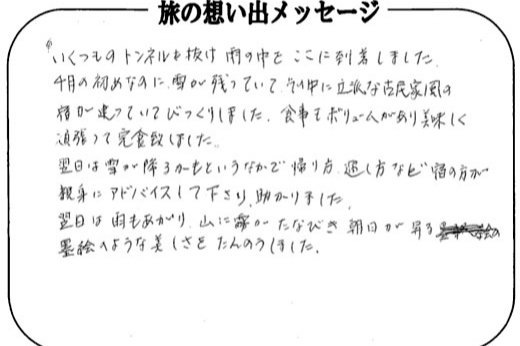 旅の想い出メッセージ
いくつものトンネルを抜け 雨の中を ここに到着しました。
4月の初めなのに、雪が残っていて、その中に立派な古民家風の
宿が建っていてびっくりしました。食事もボリュームがあり美味しく
頑張って完食致しました。
翌日は雪が降るかもというなかで 帰り方、過し方など 宿の方が
親身にアドバイスして下さり、助かりました。
翌日は雨もあがり、山に霧がたなびき 朝日が昇る
墨絵のような美しさを たんのうしました。